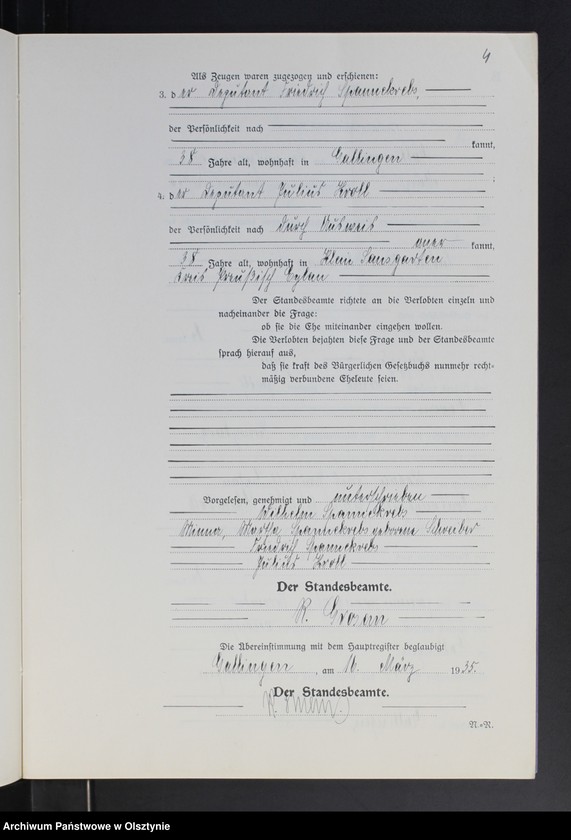 4
Als Zeugen waren zugezogen und erschienen:
3. der Deputant Friedrich Spannekrebs,
der Persönlichkeit nach
kannt,
38 Jahre alt, wohnhaft in Gallingen
4. der Deputant Julius Kroll
der Persönlichkeit nach durch Ausweis
aner kannt,
38 Jahre alt, wohnhaft in Klein Sausgarten
Kreis Preußisch Eylau
Der Standesbeamte richtete an die Verlobten einzeln und
nacheinander die Frage:
ob sie die Ehe miteinander eingehen wollen.
Die Verlobten bejahten diese Frage und der Standesbeamte
sprach hierauf aus,
daß sie kraft des Bürgerlichen Gesetzbuchs nunmehr recht-
mäßig verbundene Eheleute seien.
Vorgelesen, genehmigt und unterschrieben
Wilhelm Spannekrebs
Minna, Martha Spannekrebs geborene Schreiber
Friedrich Spannekrebs
Julius Kroll
Der Standesbeamte.
R.
Die Übereinstimmung mit dem Hauptregister beglaubigt
Gallingen, am 16. März 1935.
Der Standesbeamte.
N.+N.
Archiwum Państwowe w Olsztynie